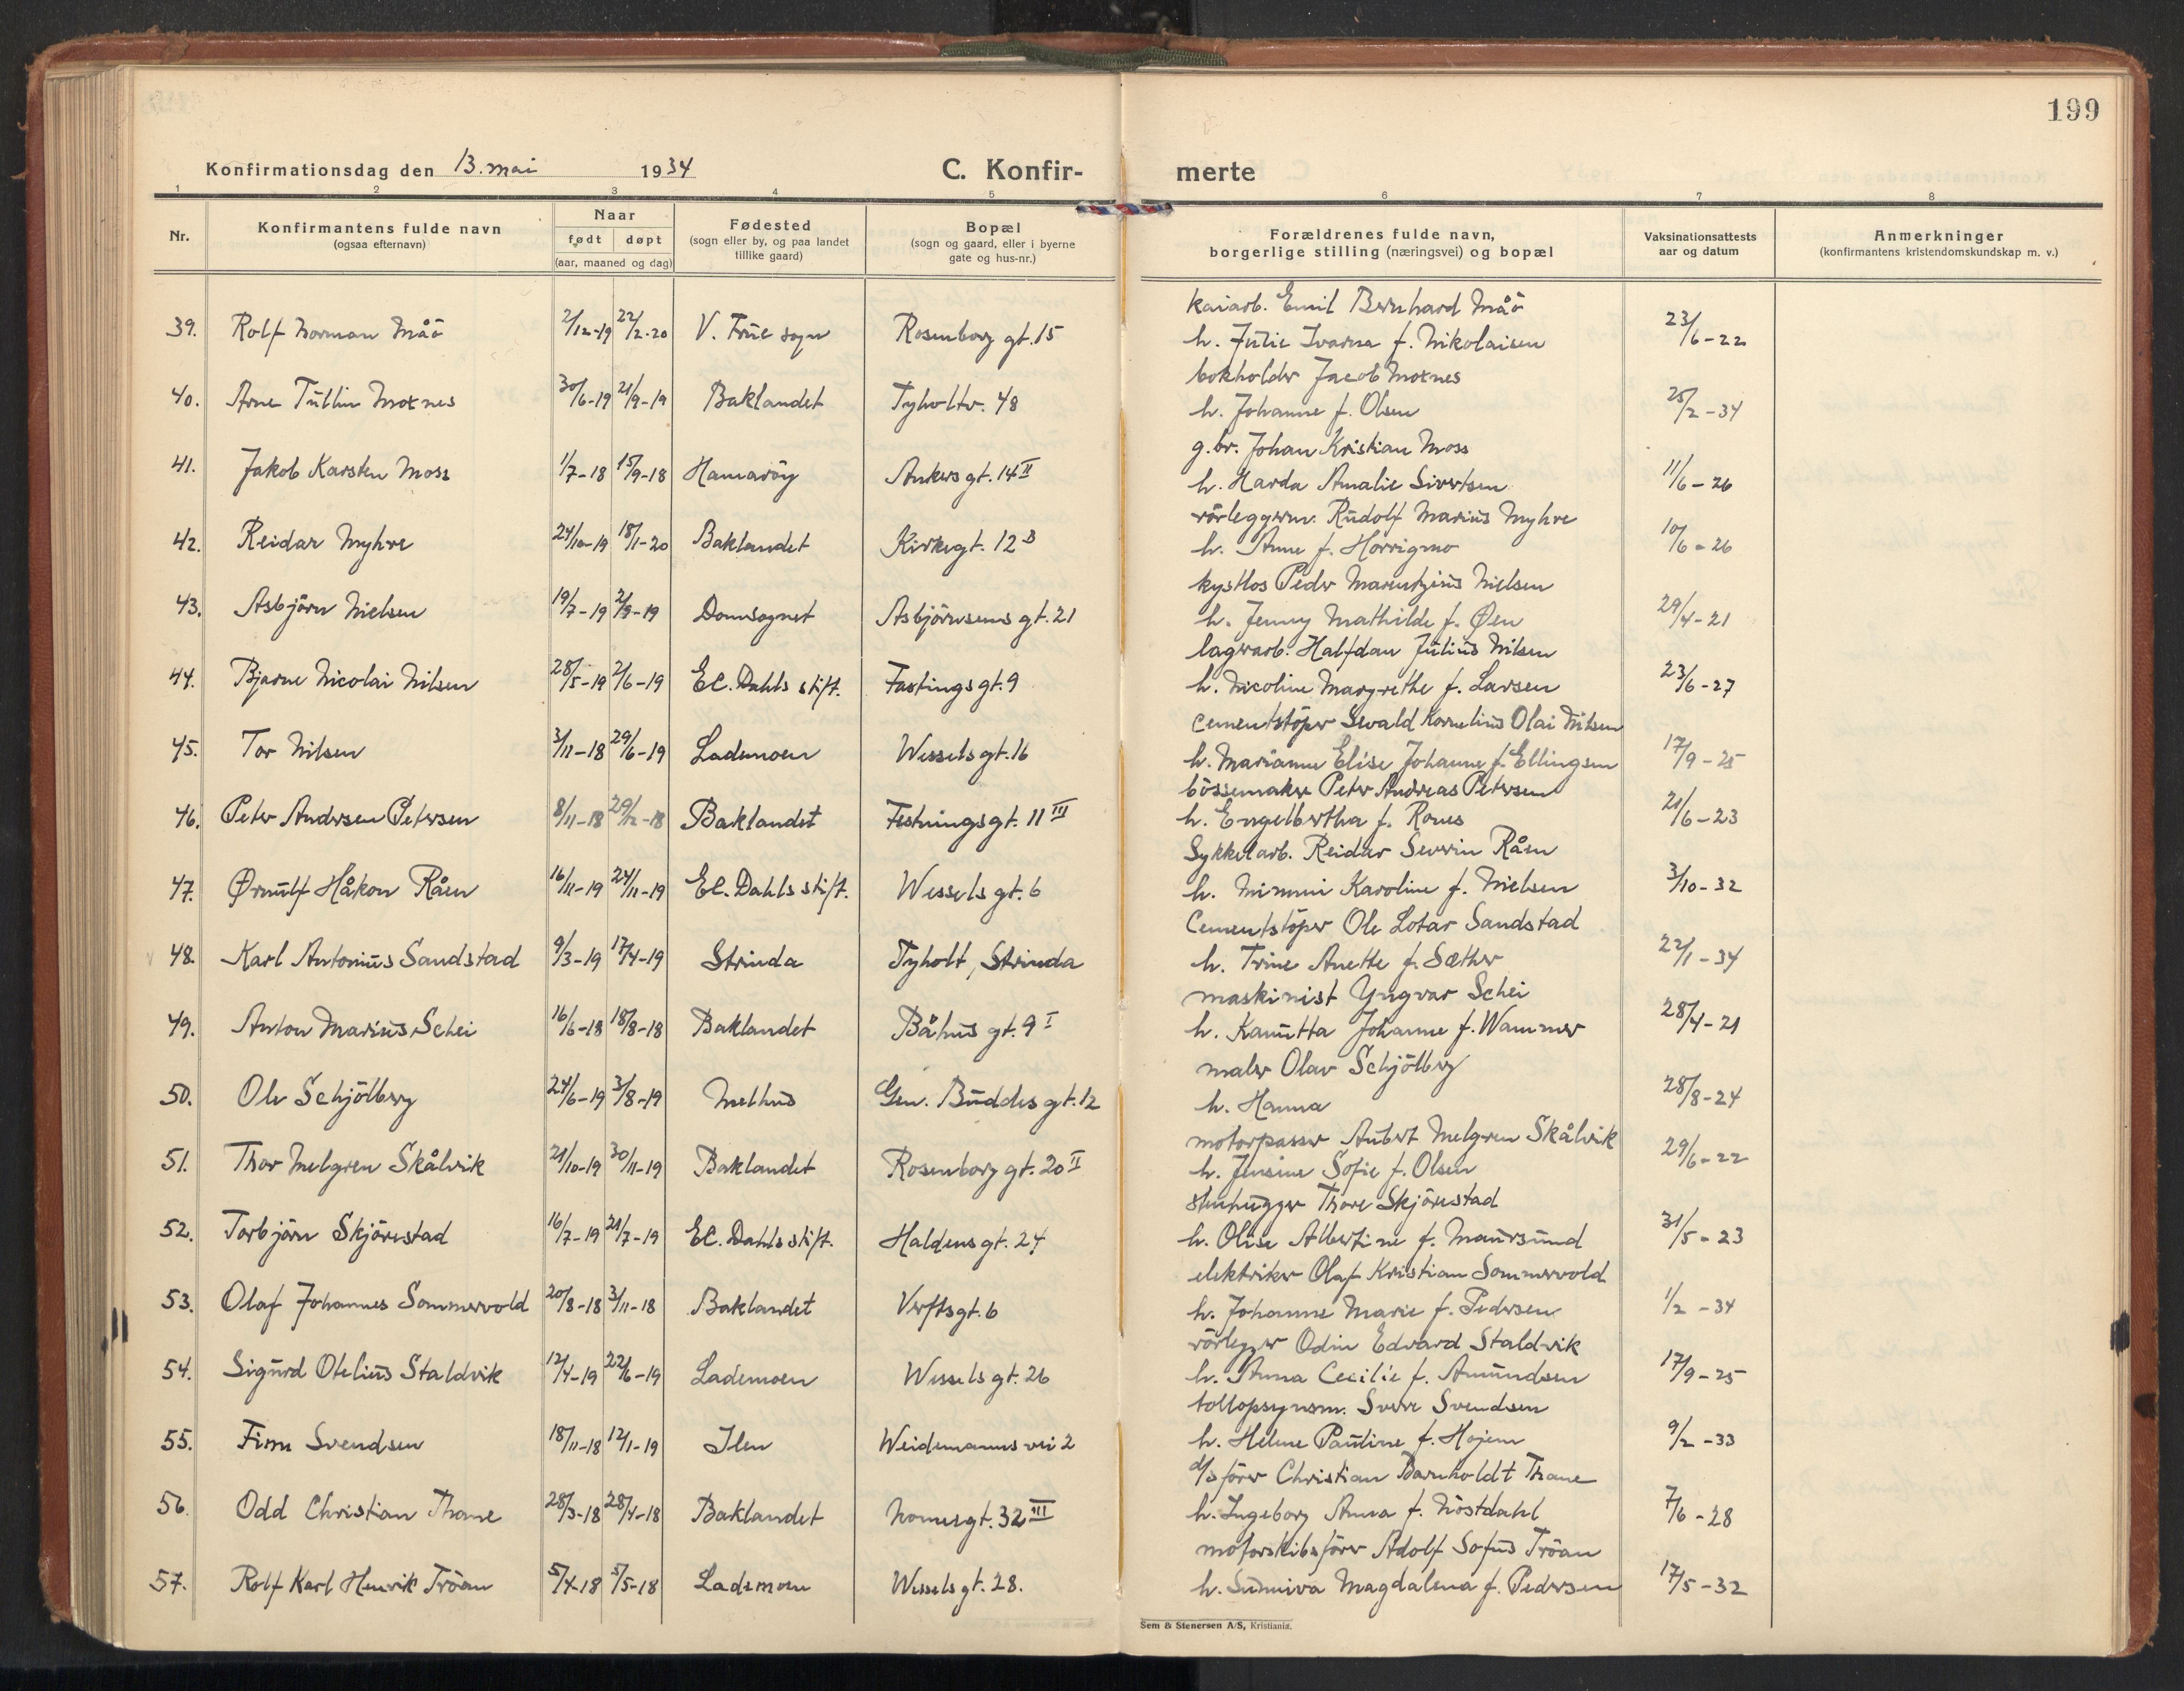 199
Konfirmationsdag den 13. mai 1934 C. Konfir- merte
1 2 3 4 5 6 7 8
Nr. Konfirmantens fulde navn (ogsaa efternavn) Naar født døpt (aar, maaned og dag) Fødested (sogn eller by, og paa landet tillike gaard) Bopæl (sogn og gaard, eller i byerne gate og hus-nr.) Forældrenes fulde navn, borgerlige stilling (næringsvei) og bopæl Vaksinationsattests aar og datum Anmerkninger (konfirmantens kristendomskundskap m. v.)
kaiarb. Emil Bernhard Måö
39. Rolf Norman Måö 2/12-19 22/2-20 V. Frue sogn Rosenborg gt. 15 h. Julie Ivarna f. Nikolaisen 23/6-22
bokholder Jacob Moxnes
40. Arne Tullin Moxnes 30/6-19 21/9-19 Baklandet Tyholtv. 48 h. Johanne f. Olsen 25/2-34
g.br. Johan Kristian Moss
41. Jakob Karsten Moss 1/7-18 15/9-18 Hamaröy Ankers gt. 14 II h. Harda Amalie Sivertsen 11/6-26
rörleggerm. Rudolf Marius Myhre
42. Reidar Myhre 24/10-19 18/1-20 Baklandet Kirkegt. 12 B h. Anne f. Horrigmo 10/6-26
kystlos Peder Marentzius Nielsen
43. Asbjörn Nielsen 19/7-19 21/9-19 Domsognet Asbjörnsens gt. 21 h. Jenny Mathilde f. Øen 29/4-21
lagerarb. Halfdan Julius Nilsen
44. Bjarne Nicolai Nilsen 28/5-19 2/6-19 El. Dahls stift. Fastings gt. 9 h. Nicoline Margrethe f. Larsen 23/6-27
cementstöper Sevald Kornelius Olai Nilsen
45. Tor Nilsen 3/11-18 29/6-19 Lademoen Wessels gt. 16 h. Marianne Elise Johanne f. Ellingsen 17/9-25
bössemaker Peter Andreas Petersen
46. Peter Andersen Petersen 8/11-18 29/12-18 Baklandet Festningsgt. 11 III h. Engelbertha f. Rones 21/6-23
Sykkelarb. Reidar Severin Råen
47. Ørnulf Håkon Råen 16/11-19 24/11-19 El. Dahls stift. Wessels gt. 6 h. Mimmi Karoline f. Nielsen 3/10-32
Cementstöper Ole Lotar Sandstad
48. Karl Antonius Sandstad 9/3-19 17/4-19 Strinda Tyholt, Strinda h. Trine Anette f. Sæther 22/1-34
maskinist Yngvar Schei
49. Anton Marius Schei 16/6-18 18/8-18 Baklandet Båhus gt. 9 I h. Kanutta Johanne f. Wammer 28/4-21
maler Olav Schjölberg
50. Ole Schjölberg 24/6-19 3/8-19 Melhus Gen. Buddes gt. 12 h. Hanna 28/8-24
motorpasser Aubert Melgren Skålvik
51. Thor Melgren Skålvik 21/10-19 30/11-19 Baklandet Rosenborg gt. 20 II h. Jensine Sofie f. Olsen 29/6-22
stenhugger Thore Skjörestad
52. Torbjörn Skjörestad 16/7-19 21/7-19 El. Dahls stift. Haldens gt. 24 h. Olise Albertine f. Maursund 31/5-23
elektriker Olaf Kristian Sommervold
53. Olaf Johannes Sommervold 20/8-18 3/11-18 Baklandet Verftsgt. 6 h. Johanne Marie f. Pedersen 1/2-34
rörlegger Odin Edvard Staldvik
54. Sigurd Otelius Staldvik 12/4-19 22/6-19 Lademoen Wessels gt. 26 h. Anna Cecilie f. Amundsen 17/9-25
tollopsynsm. Sverre Svendsen
55. Finn Svendsen 18/11-18 12/1-19 Ilen Weidemanns vei 2 h. Helene Pauline f. Hojem 9/2-33
d/s förer Christian Barnholdt Thane
56. Odd Christian Thane 28/3-18 28/4-18 Baklandet Nonnesgt. 32 III h. Ingeborg Anna f. Nöstdahl 7/6-28
motorskibsförer Adolf Sofus Tröan
57. Rolf Karl Henrik Tröan 5/4-18 5/5-18 Lademoen Wessels gt. 28. h. Sunniva Magdalena f. Pedersen 17/5-32
Sem & Stenersen A/S, Kristiania.